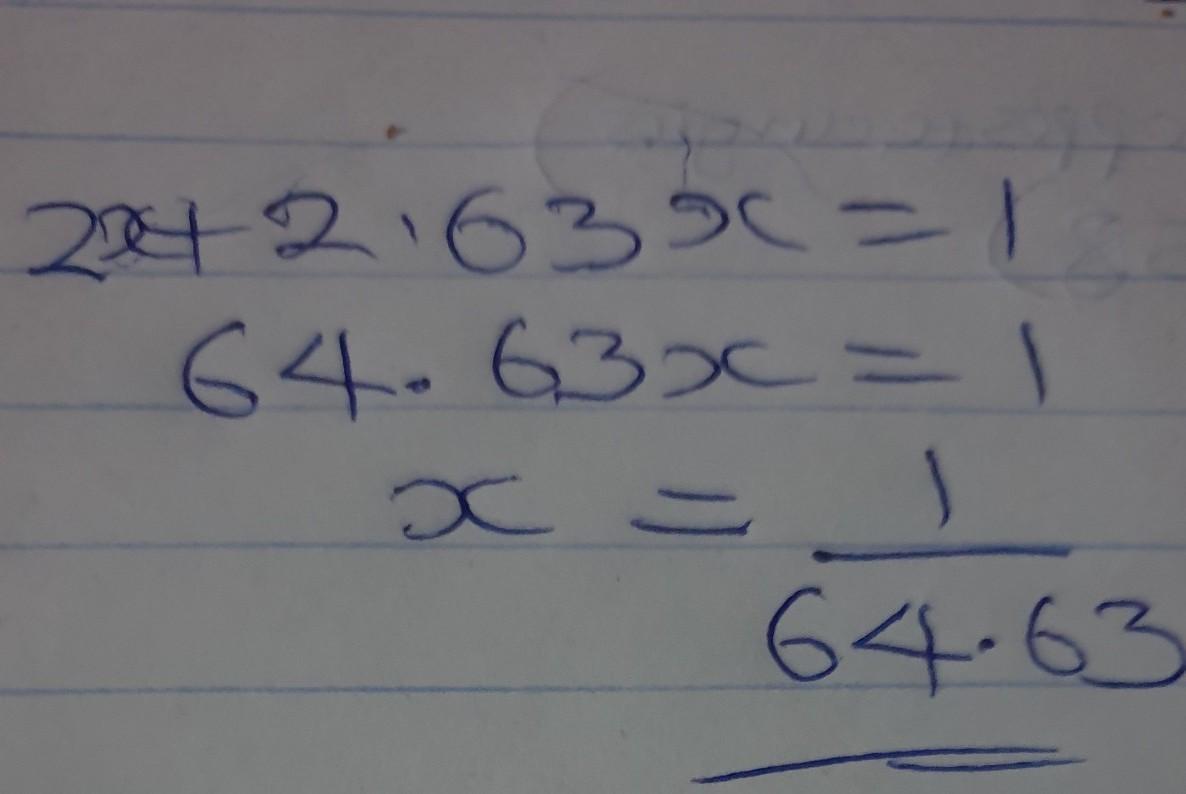 2x+2.63x=1
64.63x=1
x = 1
64.63